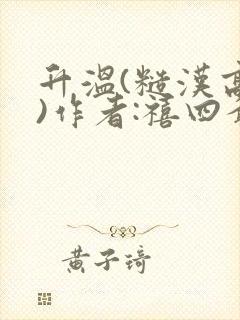 升温(糙漢高
)作者:禧四
黄子琦